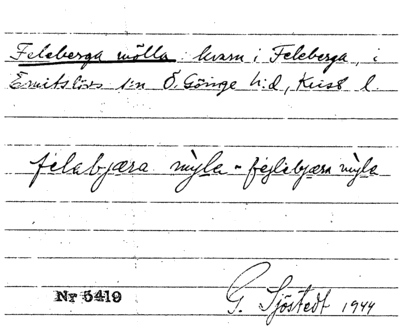 Feleberga mölla : kvarn i Feleberga, i
Emitslövs s:n Ö. Göinge h:d, Krist l.
felabjæra mỳla - fejlebjæra mỳla
Nr 5419
G. Sjöstedt 1944